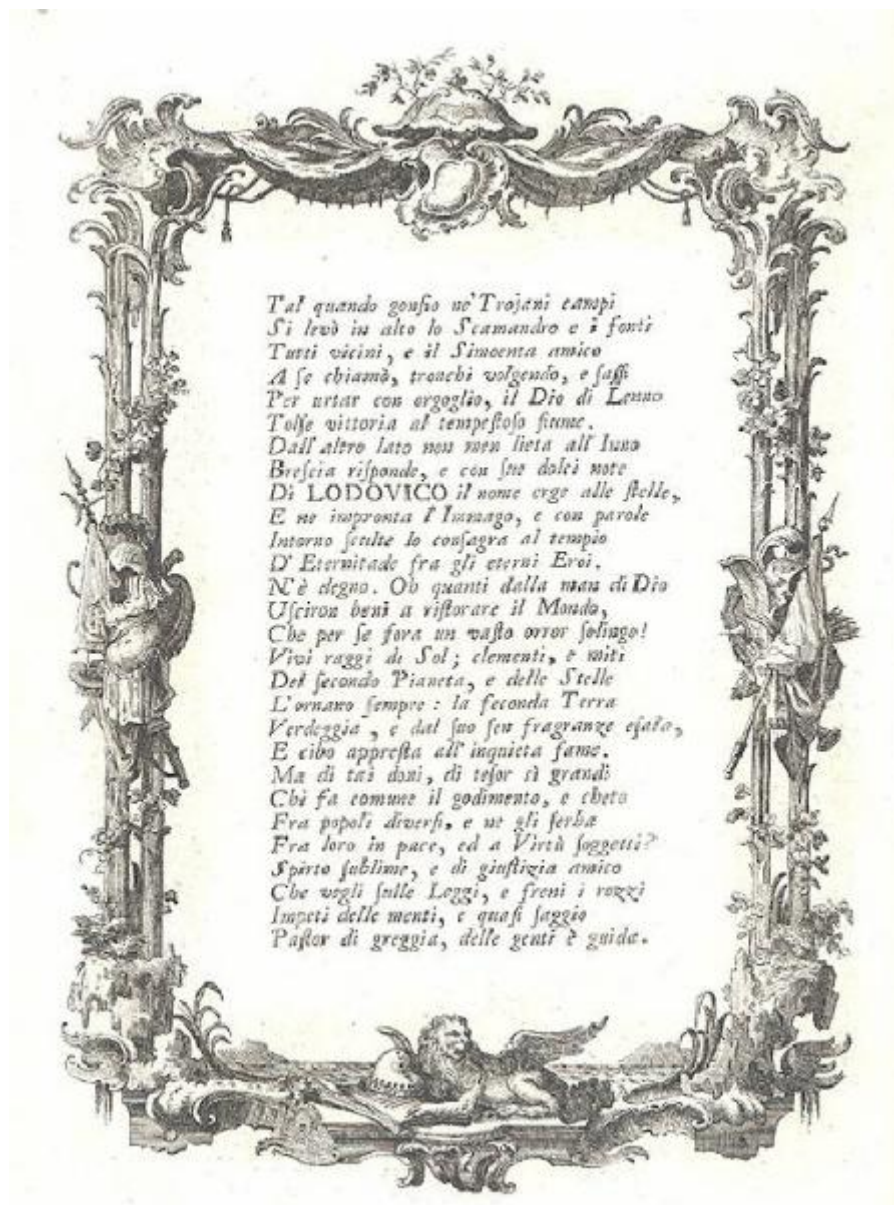 Tal quando gonfio ne' Trojani campi
Si levò in alto lo Scamandro e i fonti
Tutti vicini, e il Simoenta amico
A ſe chiamò, tronchi volgendo, e ſaſſi
Per urtar con orgoglio, il Dio di Lenno
Tolſe vittoria al tempeſtoſo fiume.
Dall' altro lato non men lieta all' Inno
Breſcia riſponde, e con ſue dolci note
Di LODOVICO il nome erge alle ſtelle,
E ne impronta l' Immago, e con parole
Intorno ſculte lo conſagra al tempio
D' Eternitade fra gli eterni Eroi.
N' è degno. Oh quanti dalla man di Dio
Uſciron beni a riſtorare il Mondo,
Che per ſe fora un vaſto orror ſolingo!
Vivi raggi di Sol; clementi, e miti
Del ſecondo Pianeta, e delle Stelle
L' ornano ſempre: la feconda Terra
Verdeggia, e dal ſuo ſen fragranze eſala,
E cibo appreſta all' inquieta fame.
Ma di tai doni, di teſor sì grandi
Chi fa comune il godimento, e cheto
Fra popoli diverſi, e ne gli ſerba
Fra loro in pace, ed a Virtù ſoggetti?
Spirto ſublime, e di giuſtizia amico
Che vegli ſulle Leggi, e freni i rozzi
Impeti delle menti, e quaſi ſaggio
Paſtor di greggia, delle genti è guida.